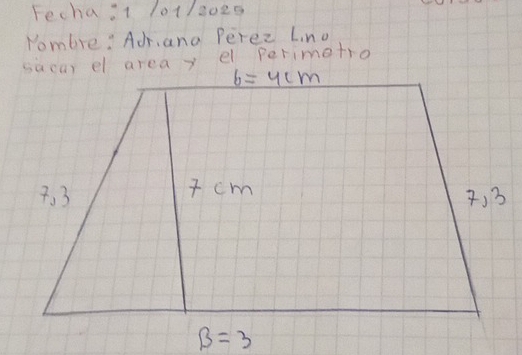 Fecha: 1 /01/2025
Nombre: Adriano Pérez Lino
sacar el area y el Perimetro
b = 4cm
7,3
7 cm
7,3
B = 3